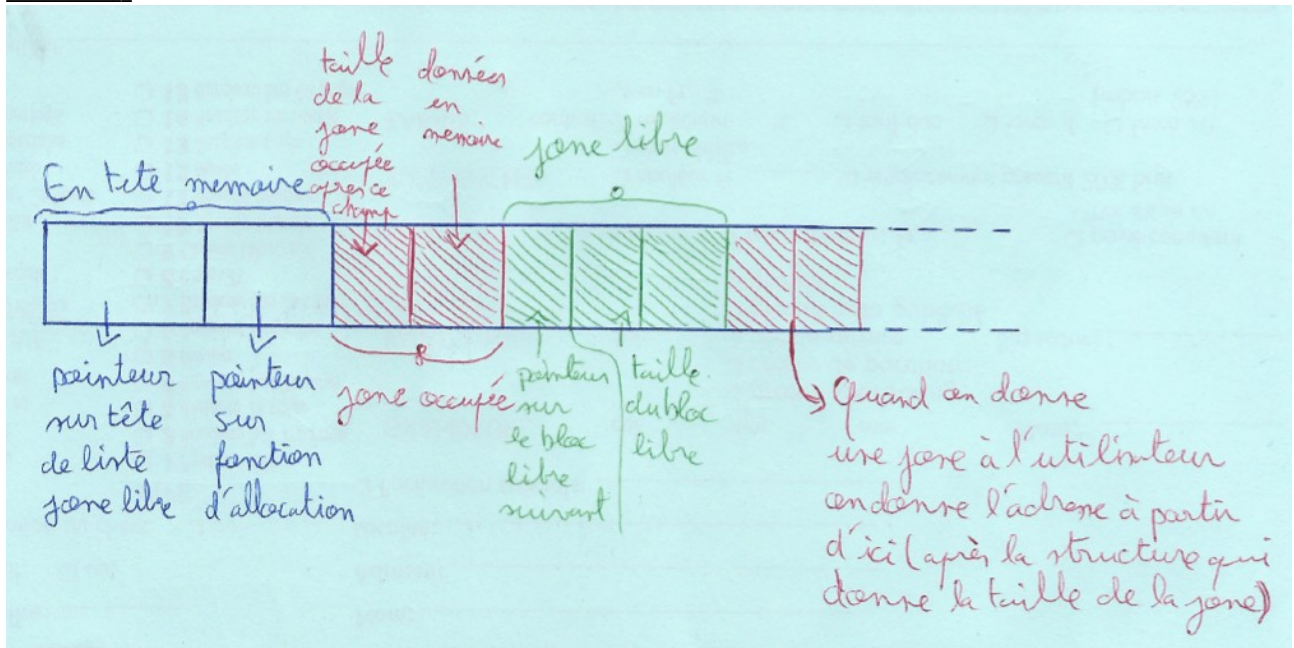 taille
de la
zone
occupée
après ce
champ
données
en
memoire
zone libre
En tete memoire
pointeur
sur tête
de liste
zone libre
pointeur
sur
fonction
d'allocation
zone occupée
pointeur
sur
le bloc
libre
suivant
taille
du bloc
libre
Quand on donne
une zone à l'utilisateur
on donne l'adresse à partir
d'ici (après la structure qui
donne la taille de la zone)